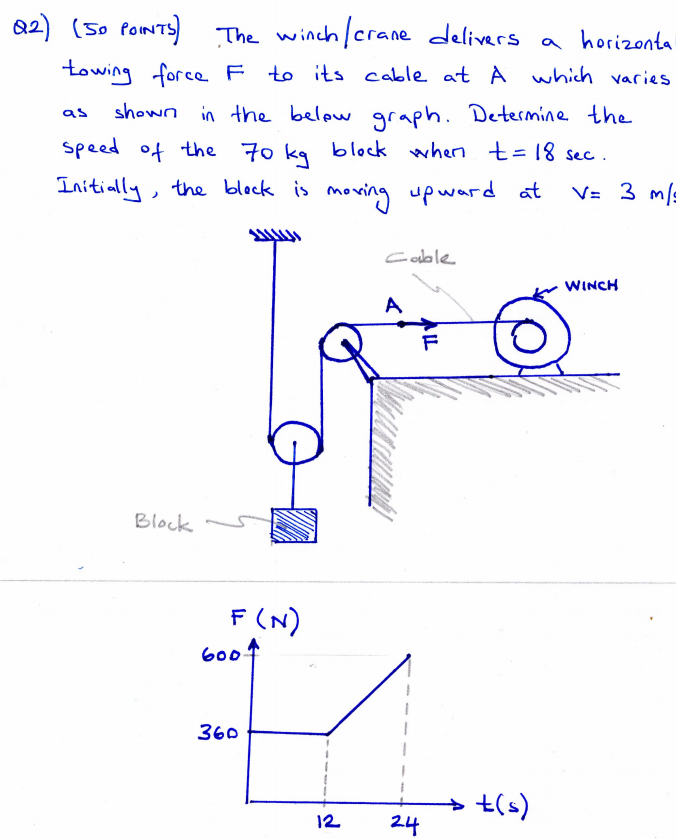 Q2) (50 POINTS) The winch/crane delivers a horizonta
towing force F to its cable at A which varies
as shown in the below graph. Determine the
speed of the 70 kg block when t = 18 sec.
Initially, the block is moving upward at V= 3 m/s
Cable
WINCH
A
F
Block
F (N)
600
360
12
24
t(s)